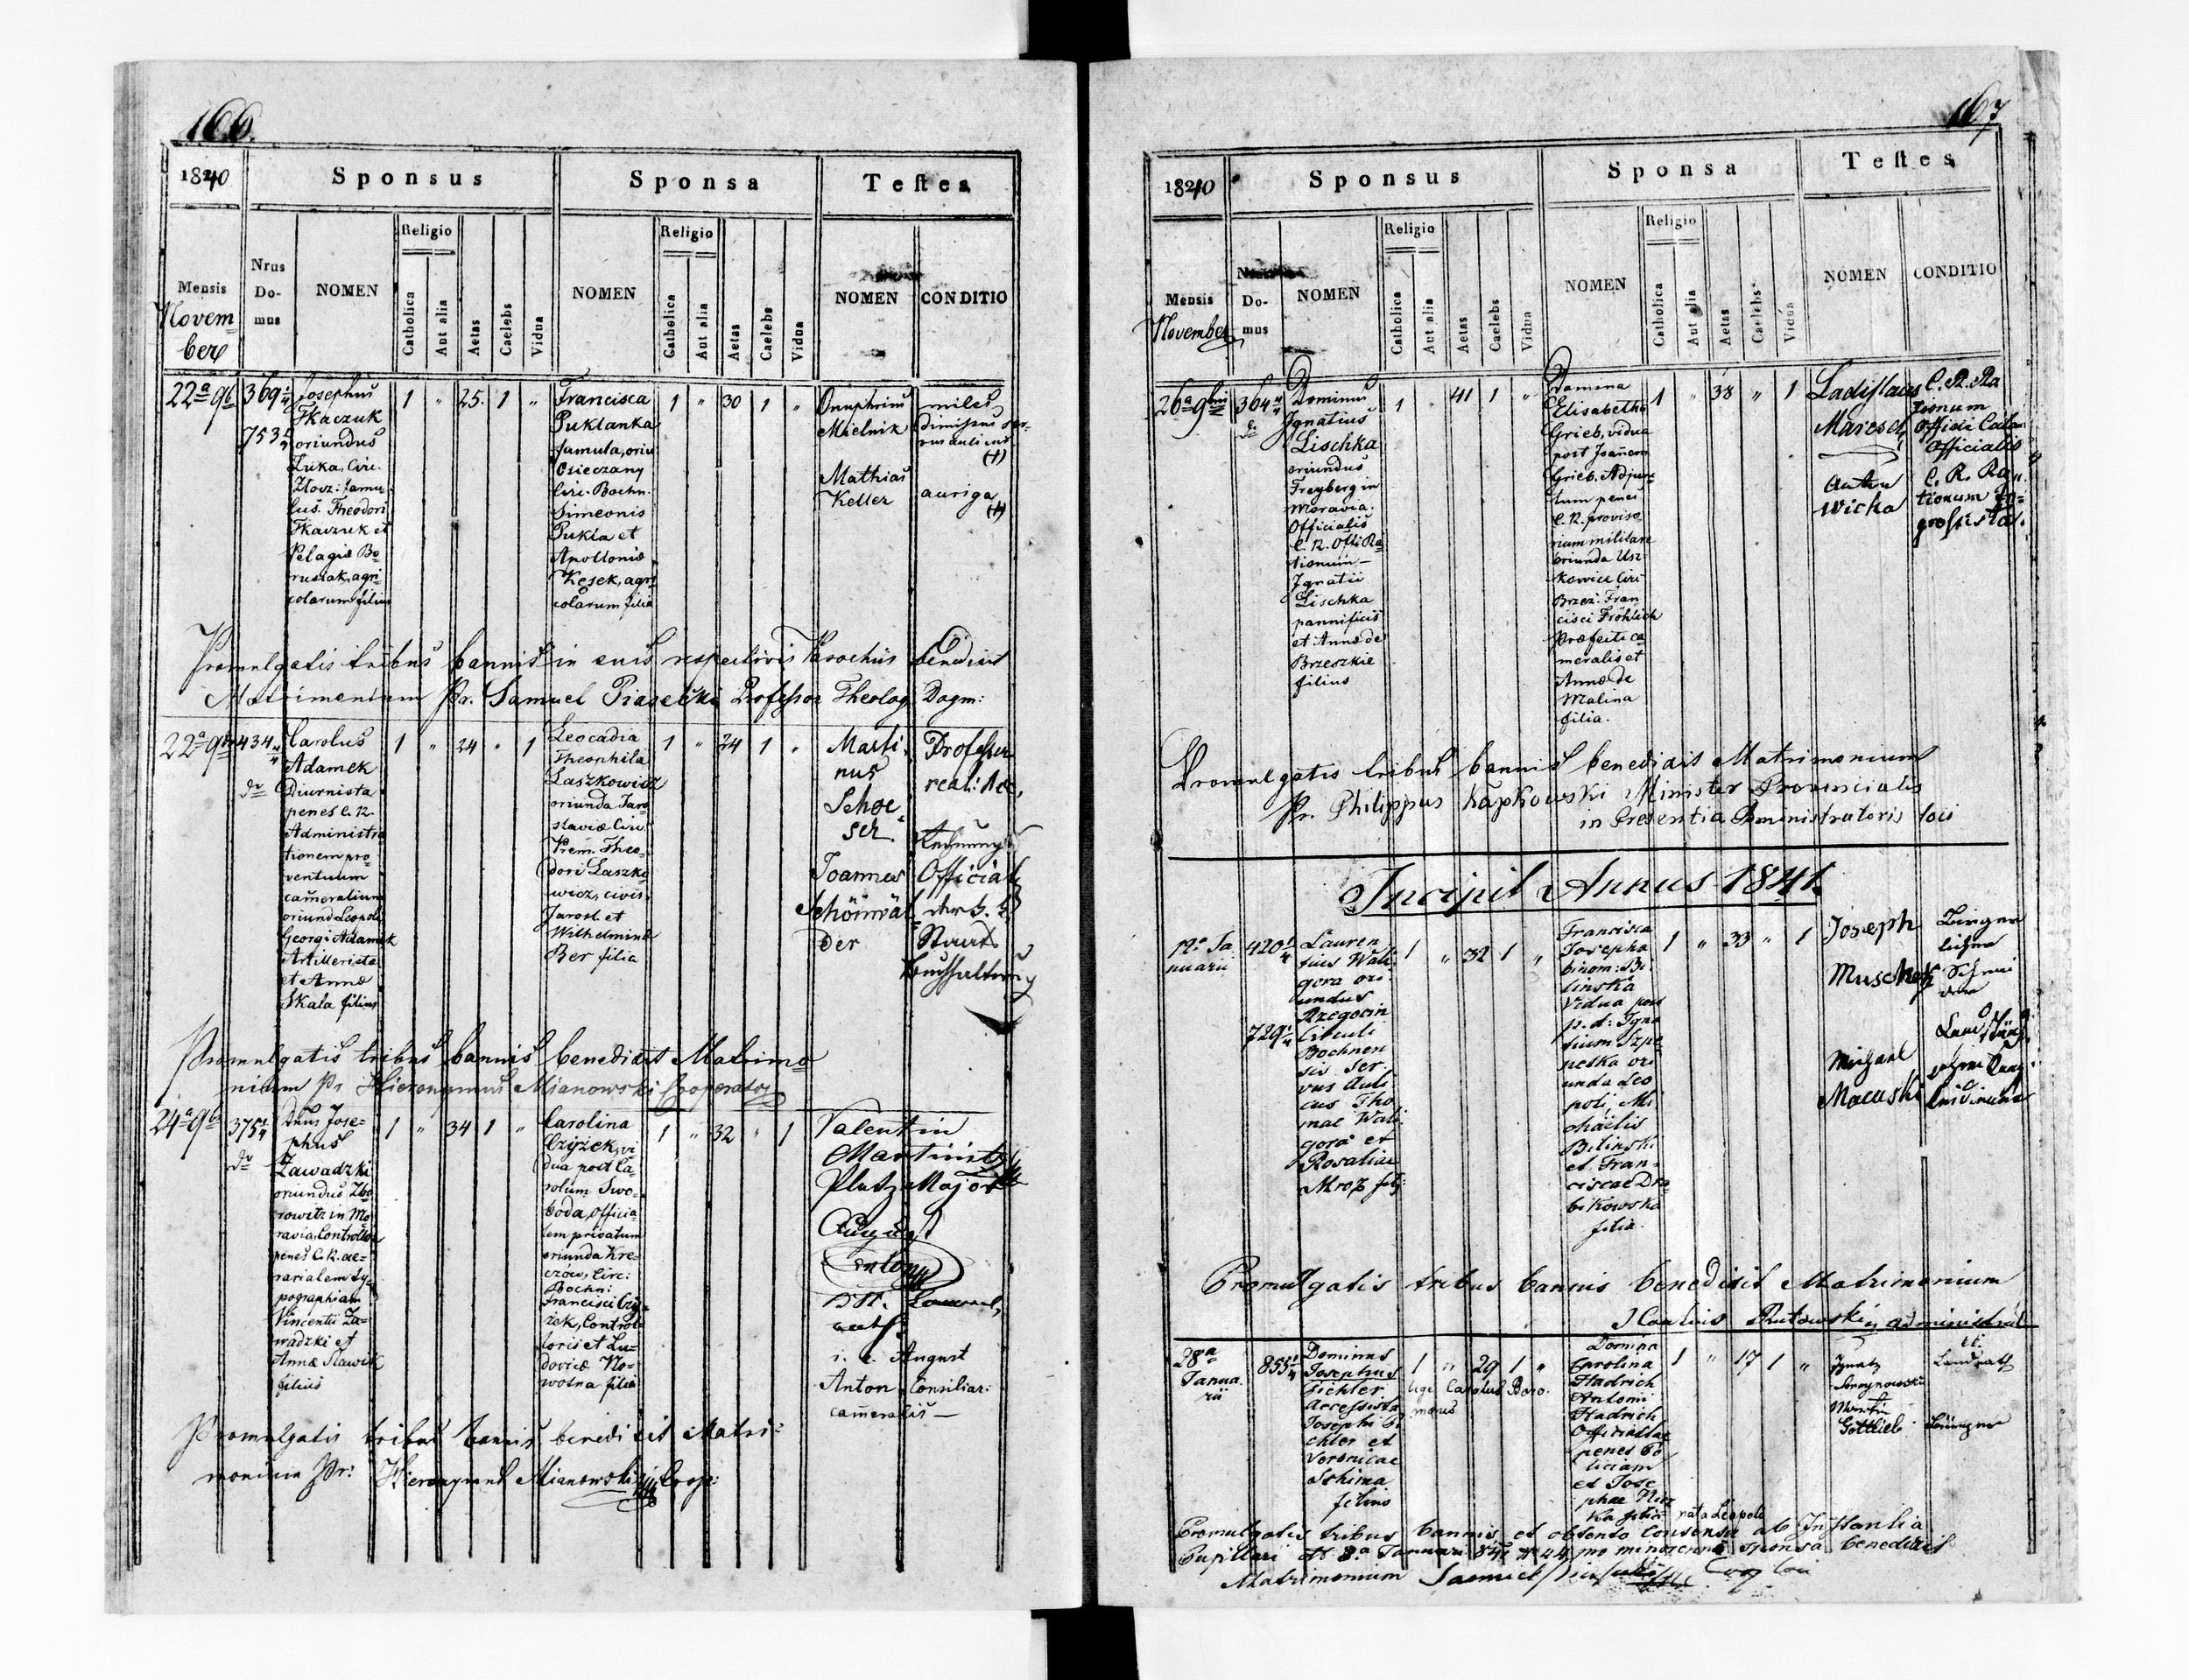 166.
1840
Sponsus
Sponsa
Testes
Mensis
Novem=
ber
Nrus
Do-
mus
NOMEN
Religio
Catholica
Aut alia
Aetas
Caelebs
Vidua
NOMEN
Religio
Catholica
Aut alia
Aetas
Caelebs
Vidua
NOMEN
CONDITIO
22a 9b
369
753
Josephus
Tkaczuk
oriundus
Luka, Circ.
Złocz: famu-
lus. Theodori
Tkaczuk et
Pelagiæ Bo
rusiak, agri-
colarum filius
1 " 25. 1 "
Francisca
Puklanka
famula, oriu:
Osieczany
Circ. Bochn.
Simeonis
Pukla et
Apolloniæ
Kęsek, agri
colarum filia
1 " 30 1 "
Onuphrius
Mielnik
miles
dimissus ser-
vus aulicus
(+)
Mathias
Keller
auriga
(+)
Promulgatis tribus bannis in suis respectivis Parochiis benedixit
Matrimonium Pr. Samuel Piasecki Professor Theolog. Dogm:
22a 9b
434
Carolus
Adamek
Diurnista
penes C. R.
Administra
tionem pro-
ventuum
cameralium
oriund Leopoli
Georgi Adamek
Artillerista
et Annæ
Skala filius
1 " 24 " 1
Leocadia
Theophila
Laszkowicz
oriunda Jaro
slaviæ Circ
Prem. Theo-
dori Laszko
wicz, civis
Jarosl. et
Wilhelminæ
Ber filia
1 " 24 1 "
Marti-
nus
Schoe-
ser
Professor
real: Acc.
Joannes
Schönwäl
der
Rechnungs
Official
der k. k.
Staats
Buchhaltung
Promulgatis tribus bannis benedixit Matrimo
nium Pr Hieronymus Mianowski Cooperator
24a 9b
375
Dnus Jose=
phus
Zawadzki
oriundus Zbo
rowitz in Mo
ravia, Controllor
penes C. R. ae=
rarialem Ty-
pographiam
Vincentii Za=
wadzki et
Annæ Slawik
filius
1 " 34 1 "
Carolina
Czyżek, vi
dua post Ca
rolum Swo-
boda, officia-
lem privatum
oriunda Kre-
czów, Circ:
Bochn:
Francisci Czy-
żek, Control-
loris et Lu-
dovicæ No-
wotna filia
1 " 32 " 1
Valentin
Martinitz
Platz Major
August
Anton
i. e. August
Anton Consiliar:
cameralis —
Promulgatis tribus bannis benedixit Matri=
monium Pr: Hieronymus Mianowski Coop:
167
1840
Sponsus
Sponsa
Testes
Mensis
November
Do-
mus
NOMEN
Religio
Catholica
Aut alia
Aetas
Caelebs
Vidua
NOMEN
Religio
Catholica
Aut alia
Aetas
Caelebs
Vidua
NOMEN
CONDITIO
26a 9bris
364
Dominus
Ignatius
Lischka
oriundus
Freyberg in
Moravia.
Officialis
C. R. Offi Ra
tionum —
Ignatii
Lischka
pannificis
et Annæ de
Brzeszkie
filius
1 " 41 1 "
Domina
Elisabetha
Grieb, vidua
post Joannem
Grieb. Adjunc-
tum penes
C. R. proviso
rium militare
oriunda Usz-
kowice Circ
Brzez: Fran
cisci Fröhlich
Præfecti ca
meralis et
Annæ de
Malina
filia.
1 " 38 " 1
Ladislaus
Maresch
C. R. Ra
tionum
Officii
Officialis
Anton
Wicha
C. R. Ra-
tionum In-
grossista.
Promulgatis tribus bannis benedixit Matrimonium
Pr. Philippus Kapkowski Minister Provincialis
in Presentia Administratoris loci
Incipit Annus 1841.
12a Ja
nuarii
420
729
Lauren
tius Wali
gora ori-
undus
Rzegocin
Circuli
Bochnen
sis Ser-
vus Auli
cus Tho
mae Wali
gora et
Rosaliae
Mroz filj:
1 " 32 1 "
Francisca
Josepha
binom: Bi
linska
Vidua post
p. d: Igna
tium
oriunda Leo
poli, Mi
chaelis
Bilinski
et Fran-
ciscae Dro
bikowska
filia.
1 " 33 " 1
Joseph
Muschek
Bürger
licher
Schnei
der
Michael
Macuski
Promulgatis tribus bannis benedixit Matrimonium
Rutowski administrat
28a
Janua
rii
855
Dominus
Josephus
Pichler
Accessista
Josephi Pi
chler et
Veronicae
Schima
filius
1 " 29 1 "
lege Carolus Boro.
maeus
Domina
Carolina
Hadrich
Antoni
Hadrich
Officialis
penes Po
liciam
et Jose
phae
ka filia nata Leopoli
1 " 17 1 "
Ignatz
Landrath
Martin
Gottlieb
Bürger
Promulgatis tribus bannis et obtento Consensu ab Instantia
Pupillari dt 8a Januari 841 N 44 pro minorenni sponsa benedixit
Matrimonium Samuel Coop loci